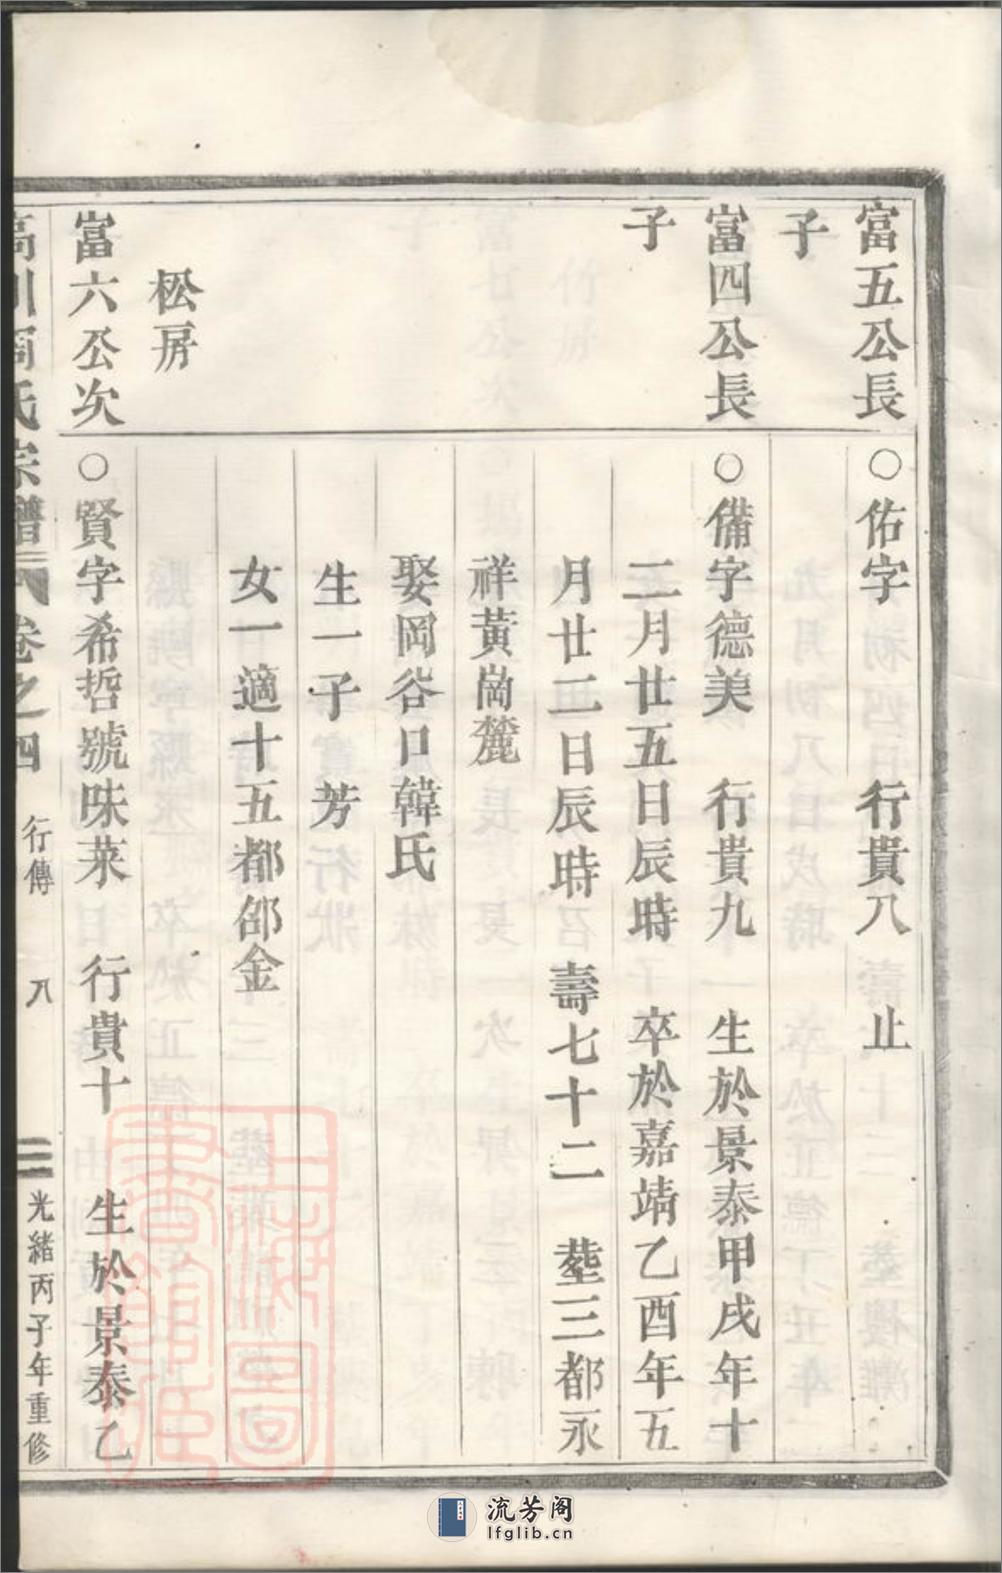 富五公長
子
○佑字 行貴八 止
富四公長
子
○備字德美 行貴九 生於景泰甲戌年十
二月廿五日辰時 卒於嘉靖乙酉年五
月廿二日辰時 壽七十二 塟三都永
祥黃崗麓
娶岡谷口韓氏
生一子 芳
女一適十五都邵金
松房
富六公次
○賢字希哲號味菜 行貴十 生於景泰乙
氏宗譜 卷之四 行傳 八 光緒丙子年重修
流芳阁
lfglib.cn